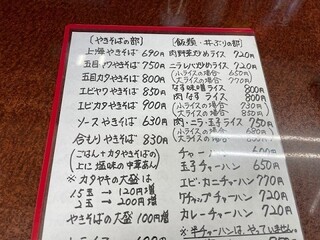 [やきそばの部]
上海やきそば 690円
五目ヤワやきそば 750円
五目カタやきそば 800円
エビヤワやきそば 850円
エビカタやきそば 900円
ソースやきそば 630円
やきそば 830円
(ごはん+カタやきそばの)
(上に塩味の中華あん)
※カタヤキの大盛は
1.5玉→120円増
2玉→200円増
やきそばの大盛100円増
[飯類・丼ぶりの部]
肉野菜炒めライス 720円
ニラレバ炒めライス 720円
(小ライスの場合 650円)
(大ライスの場合 770円)
なす味噌ライス 800円
肉なすライス 800円
(小ライスの場合 730円)
(大ライスの場合 850円)
肉・ニラ・玉子ライス 750円
チャー
玉子チャーハン 650円
エビ・カニチャーハン 770円
ケチャップチャーハン 720円
カレーチャーハン 720円
※半チャーハンは、やっていません。